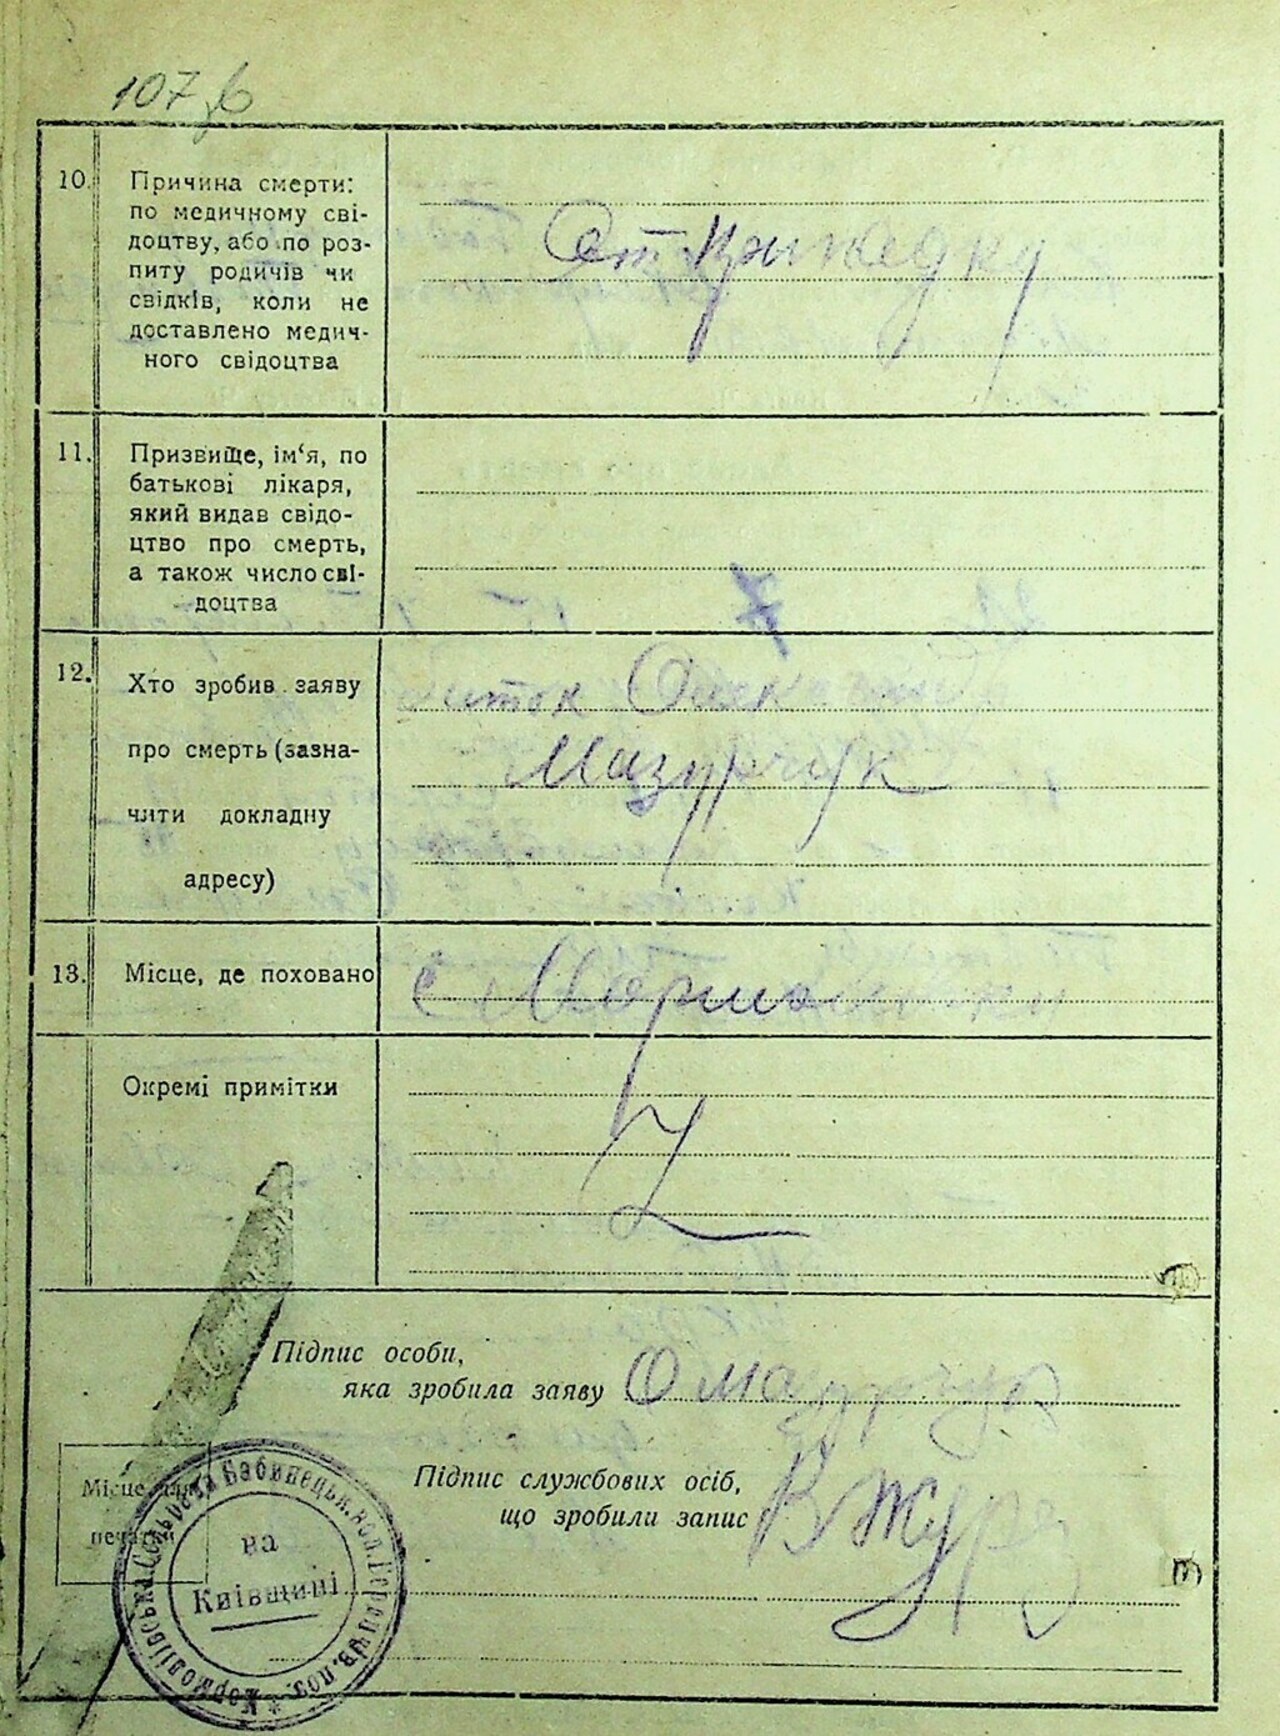 107 зв
10.
Причина смерти:
по медичному сві-
доцтву, або по роз-
питу родичів чи
свідків, коли не
доставлено медич-
ного свідоцтва
От припадку
11.
Призвище, ім‘я, по
батькові лікаря,
який видав свідо-
цтво про смерть,
а також число сві-
доцтва
12.
Хто зробив заяву
про смерть (зазна-
чити докладну
адресу)
Мазурчук
13.
Місце, де поховано
с
Окремі примітки
Z
Підпис особи,
яка зробила заяву
О Мазурчук
Місце для
печатки
Підпис службових осіб,
що зробили запис
В Жура
на
Київщині